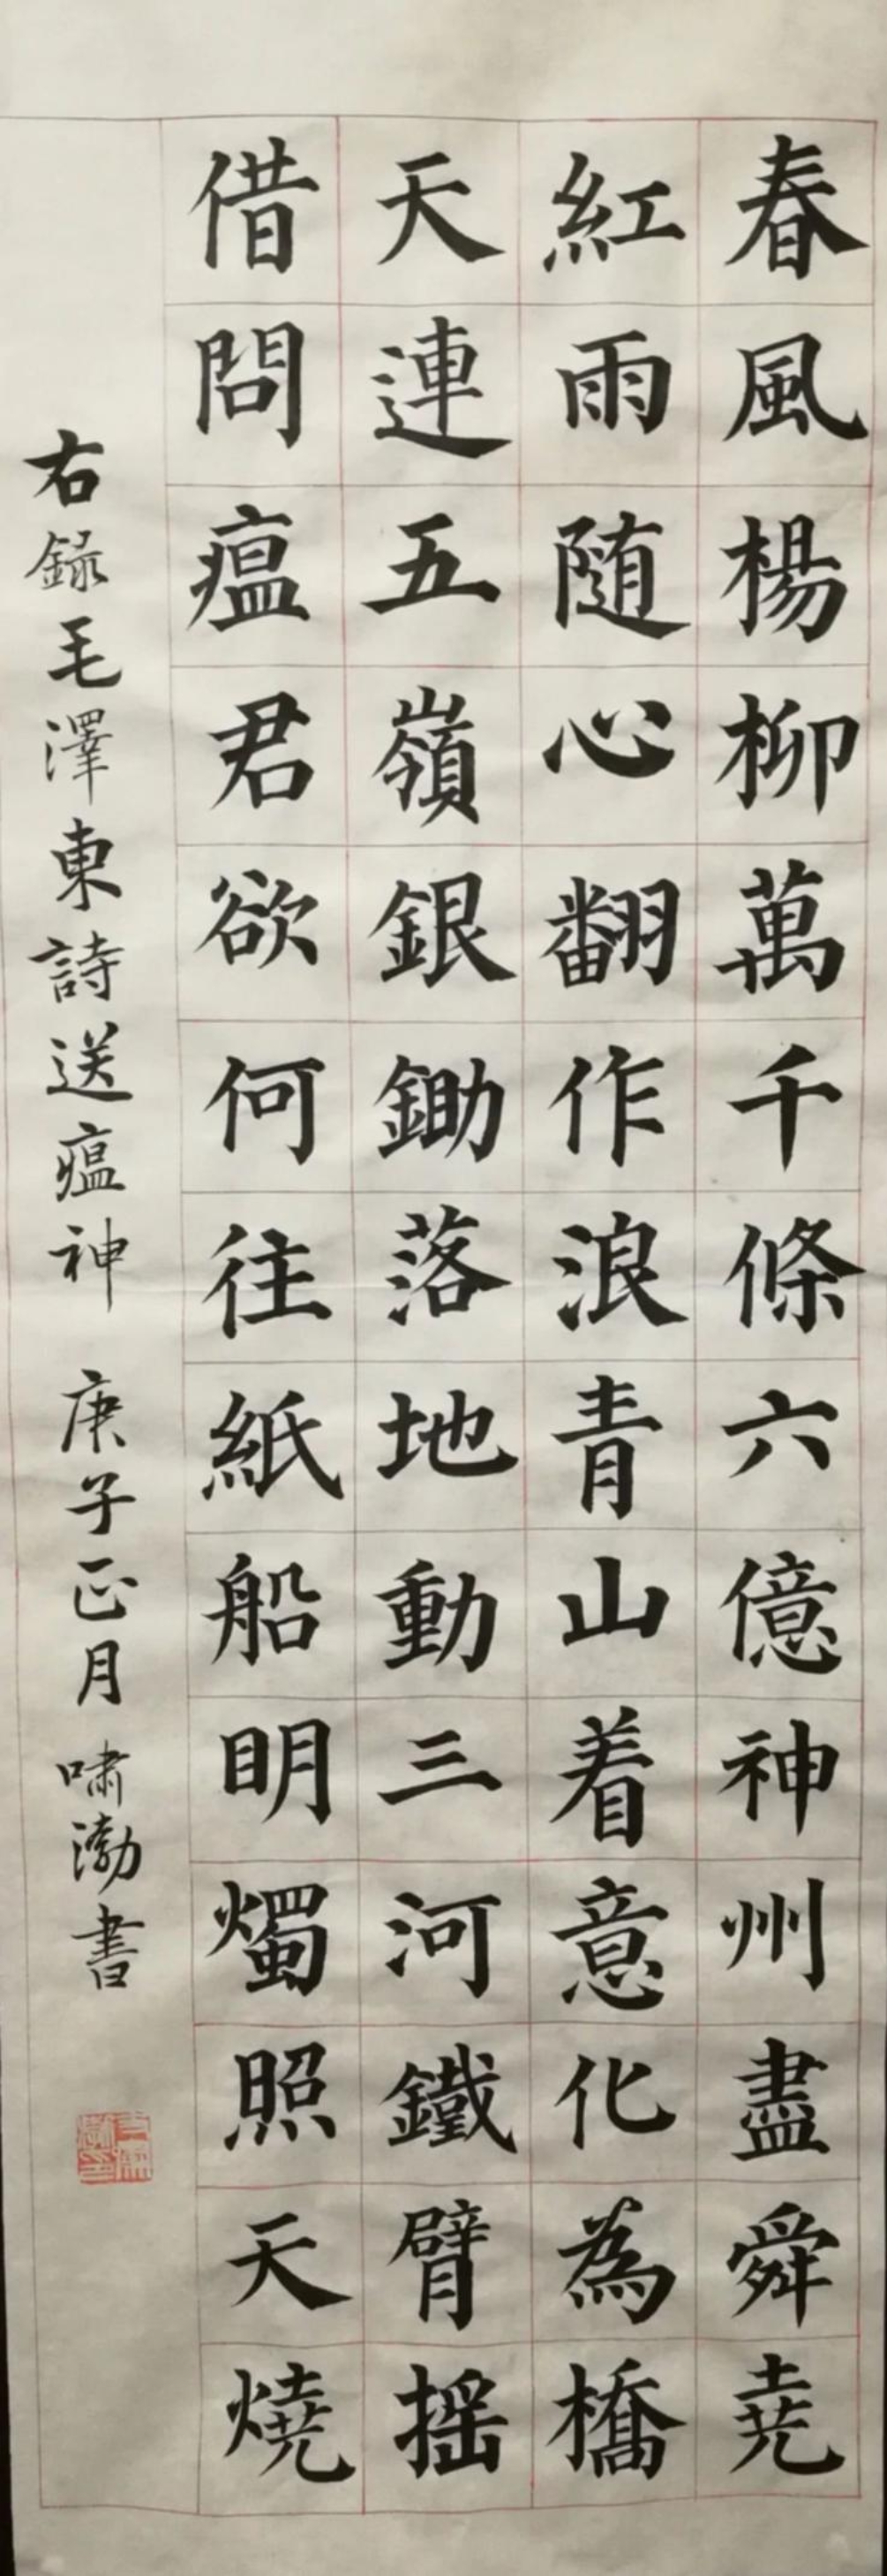 春風楊柳萬千條六億神州盡舜堯
紅雨随心翻作浪青山着意化為橋
天連五嶺銀鋤落地動三河鐵臂摇
借問瘟君欲何往紙船明燭照天燒
右錄毛澤東詩送瘟神 庚子正月 嘯渤書